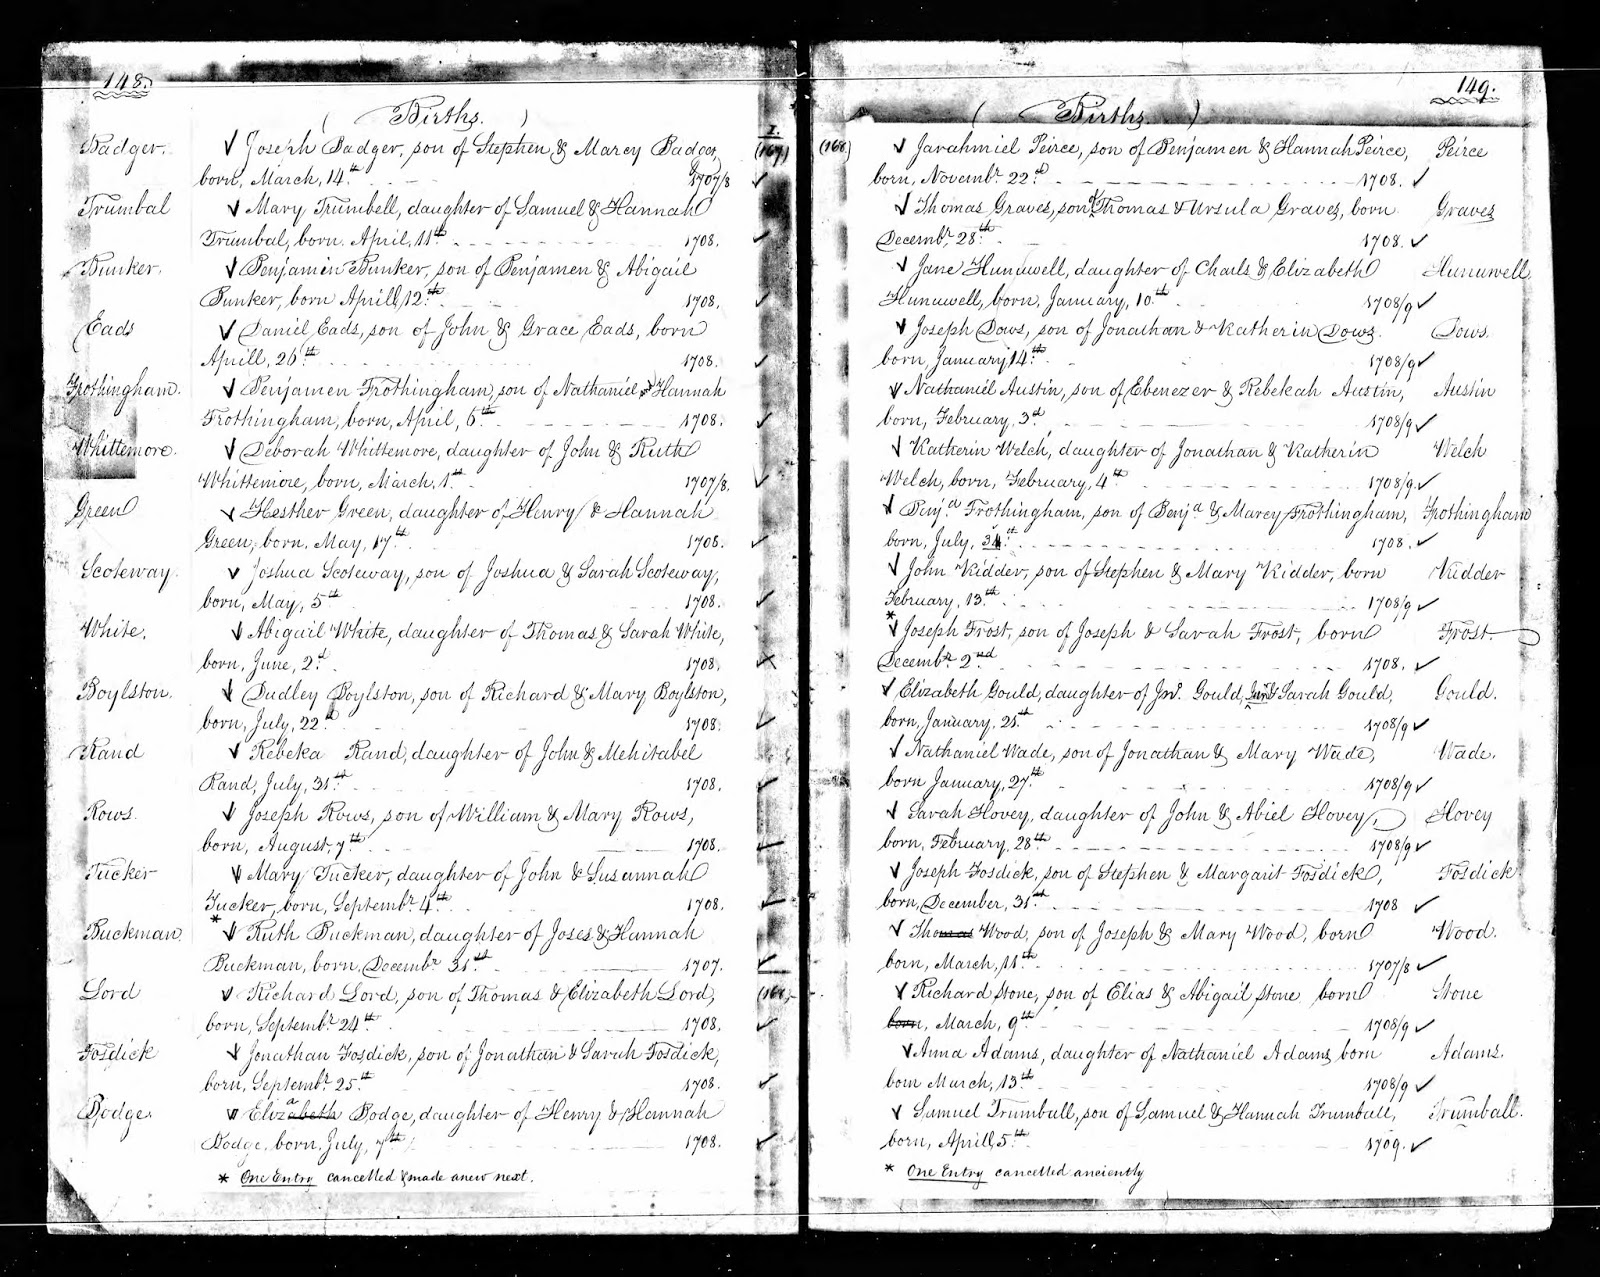 148.
(Births.)
Badger. Joseph Badger, son of Stephen & Marcy Badger, (167)
born, March, 14th 1707/8
Trumbal Mary Trumbell, daughter of Samuel & Hannah
Trumbal, born. April, 11th 1708.
Bunker. Benjamin Bunker, son of Benjamen & Abigail
Bunker, born Aprill, 12th 1708.
Eads Daniel Eads, son of John & Grace Eads, born
Aprill, 26th 1708.
Frothingham. Benjamen Frothingham, son of Nathaniel & Hannah
Frothingham, born, April, 6th 1708.
Whittemore. Deborah Whittemore, daughter of John & Ruth
Whittemore, born, March, 1st 1707/8.
Green Hesther Green, daughter of Henry & Hannah
Green, born, May, 17th 1708.
Scoteway. Joshua Scoteway, son of Joshua & Sarah Scoteway,
born, May, 5th 1708.
White. Abigail White, daughter of Thomas & Sarah White,
born, June, 2d 1708.
Boylston. Dudley Boylston, son of Richard & Mary Boylston,
born, July, 22d 1708.
Rand Rebeka Rand, daughter of John & Mehitabel
Rand, July, 31st 1708.
Rows. Joseph Rows, son of William & Mary Rows,
born, August, 7th 1708.
Tucker Mary Tucker, daughter of John & Susannah
Tucker, born, Septembr 4th 1708.
Buckman * Ruth Buckman, daughter of Joses & Hannah
Buckman, born, Decembr 31st 1707.
Lord Richard Lord, son of Thomas & Elizabeth Lord,
born, Septembr 24th 1708.
Fosdick Jonathan Fosdick, son of Jonathan & Sarah Fosdick,
born, Septembr 25th 1708.
Dodge. Elizabeth Dodge, daughter of Henry & Hannah
Dodge, born, July, 7th 1708.
* One Entry cancelled & made anew next.
149.
(Births.)
(168) Jarahmiel Peirce, son of Benjamen & Hannah Peirce, Peirce
born, Novembr 22d 1708.
Thomas Graves, son of Thomas & Ursula Graves, born Graves
Decembr 28th 1708.
Jane Hunuwell, daughter of Charls & Elizabeth Hunuwell
Hunuwell, born, January, 10th 1708/9
Joseph Dows, son of Jonathan & Katherin Dows. Dows.
born, January, 14th 1708/9
Nathaniel Austin, son of Ebenezer & Rebekah Austin, Austin
born, February, 3d 1708/9
Katherin Welch, daughter of Jonathan & Katherin Welch
Welch, born, February, 4th 1708/9
Benja Frothingham, son of Benja & Marcy Frothingham, Frothingham
born, July, 1708.
John Kidder, son of Stephen & Mary Kidder, born Kidder
February, 13th 1708/9
* Joseph Frost, son of Joseph & Sarah Frost, born Frost.
Decembr 2nd 1708.
Elizabeth Gould, daughter of Jno. Gould, Junr & Sarah Gould, Gould.
born, January, 21st 1708/9
Nathaniel Wade, son of Jonathan & Mary Wade, Wade.
born January, 27th 1708/9
Sarah Hovey, daughter of John & Abiel Hovey, Hovey
born, February, 28th 1708/9
Joseph Fosdick, son of Stephen & Margarit Fosdick, Fosdick
born, December, 31st 1708
Thomas Wood, son of Joseph & Mary Wood, born Wood.
born, March, 11th 1707/8
Richard Stone, son of Elias & Abigail Stone born Stone
born, March, 9th 1708/9
Anna Adams, daughter of Nathaniel Adams, born Adams.
born March, 13th 1708/9
Samuel Trumball, son of Samuel & Hannah Trumball, Trumball.
born, April, 5th 1709.
* One Entry cancelled anciently